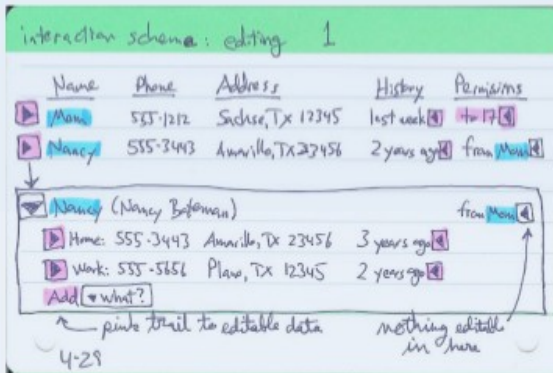 interaction scheme: editing 1
Name Phone Address History Permissions
Mom 555-1212 Sachse, TX 12345 last week to 17
Nancy 555-3443 Amarillo, TX 23456 2 years ago from Mom
Nancy (Nancy Bateman) from Mom
Home: 555-3443 Amarillo, TX 23456 3 years ago
Work: 555-5656 Plano, TX 12345 2 years ago
Add what?
pink trail to editable data
nothing editable in here
4-29